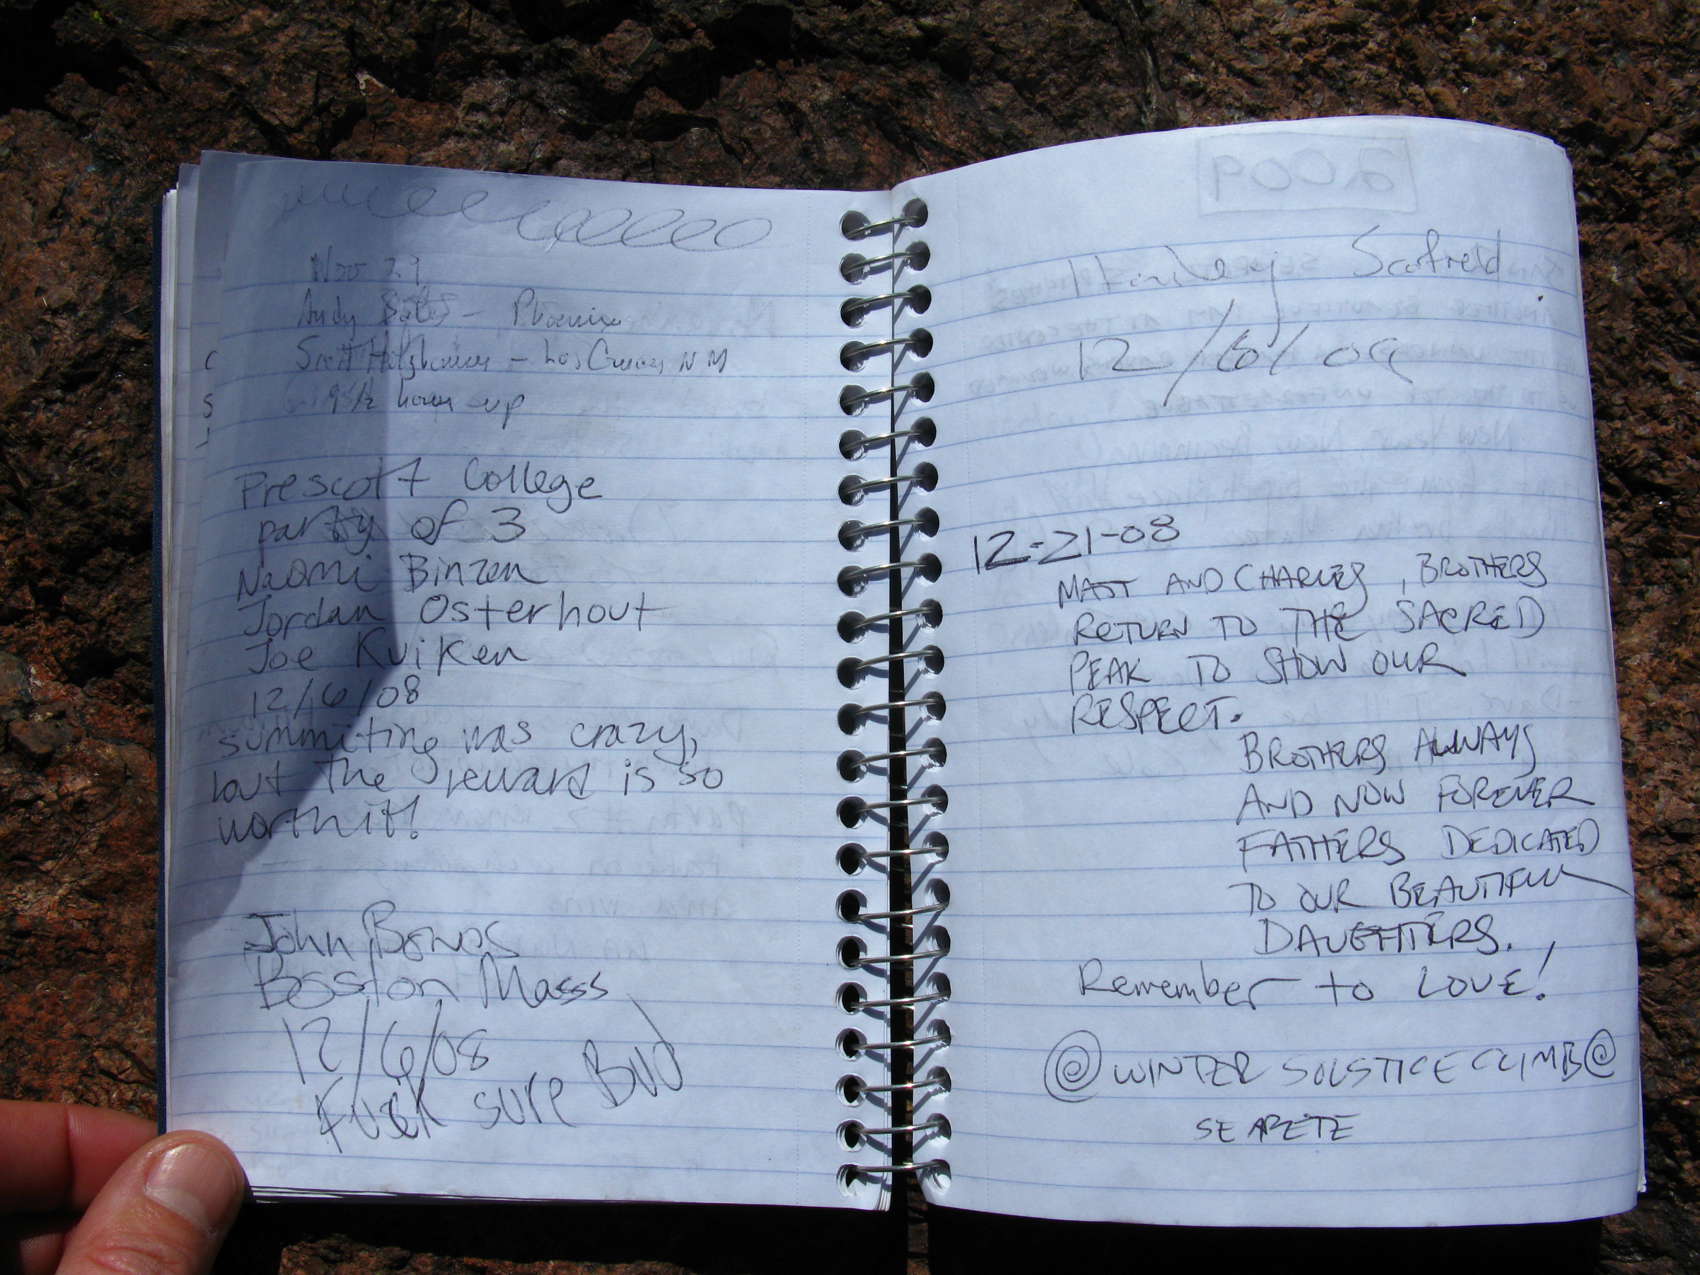 Nov 29
Andy Bates - Phoenix
Scott - Las Cruces NM
9 1/2 hours up
Prescott College
party of 3
Naomi Binzen
Jordan Osterhout
Joe Kuiken
12/6/08
summiting was crazy,
but the reward is so
worth it!
John Bowos
Bosston Masss
12/6/08
Fuck sure Bud
2009
Hinley Scofield
12/6/08
12-21-08
MATT AND CHARLES, BROTHERS
RETURN TO THE SACRED
PEAK TO SHOW OUR
RESPECT.
BROTHERS ALWAYS
AND NOW FOREVER
FATHERS DEDICATED
TO OUR BEAUTIFUL
DAUGHTERS.
Remember to LOVE!
@ WINTER SOLSTICE CLIMB @
SE ARETE